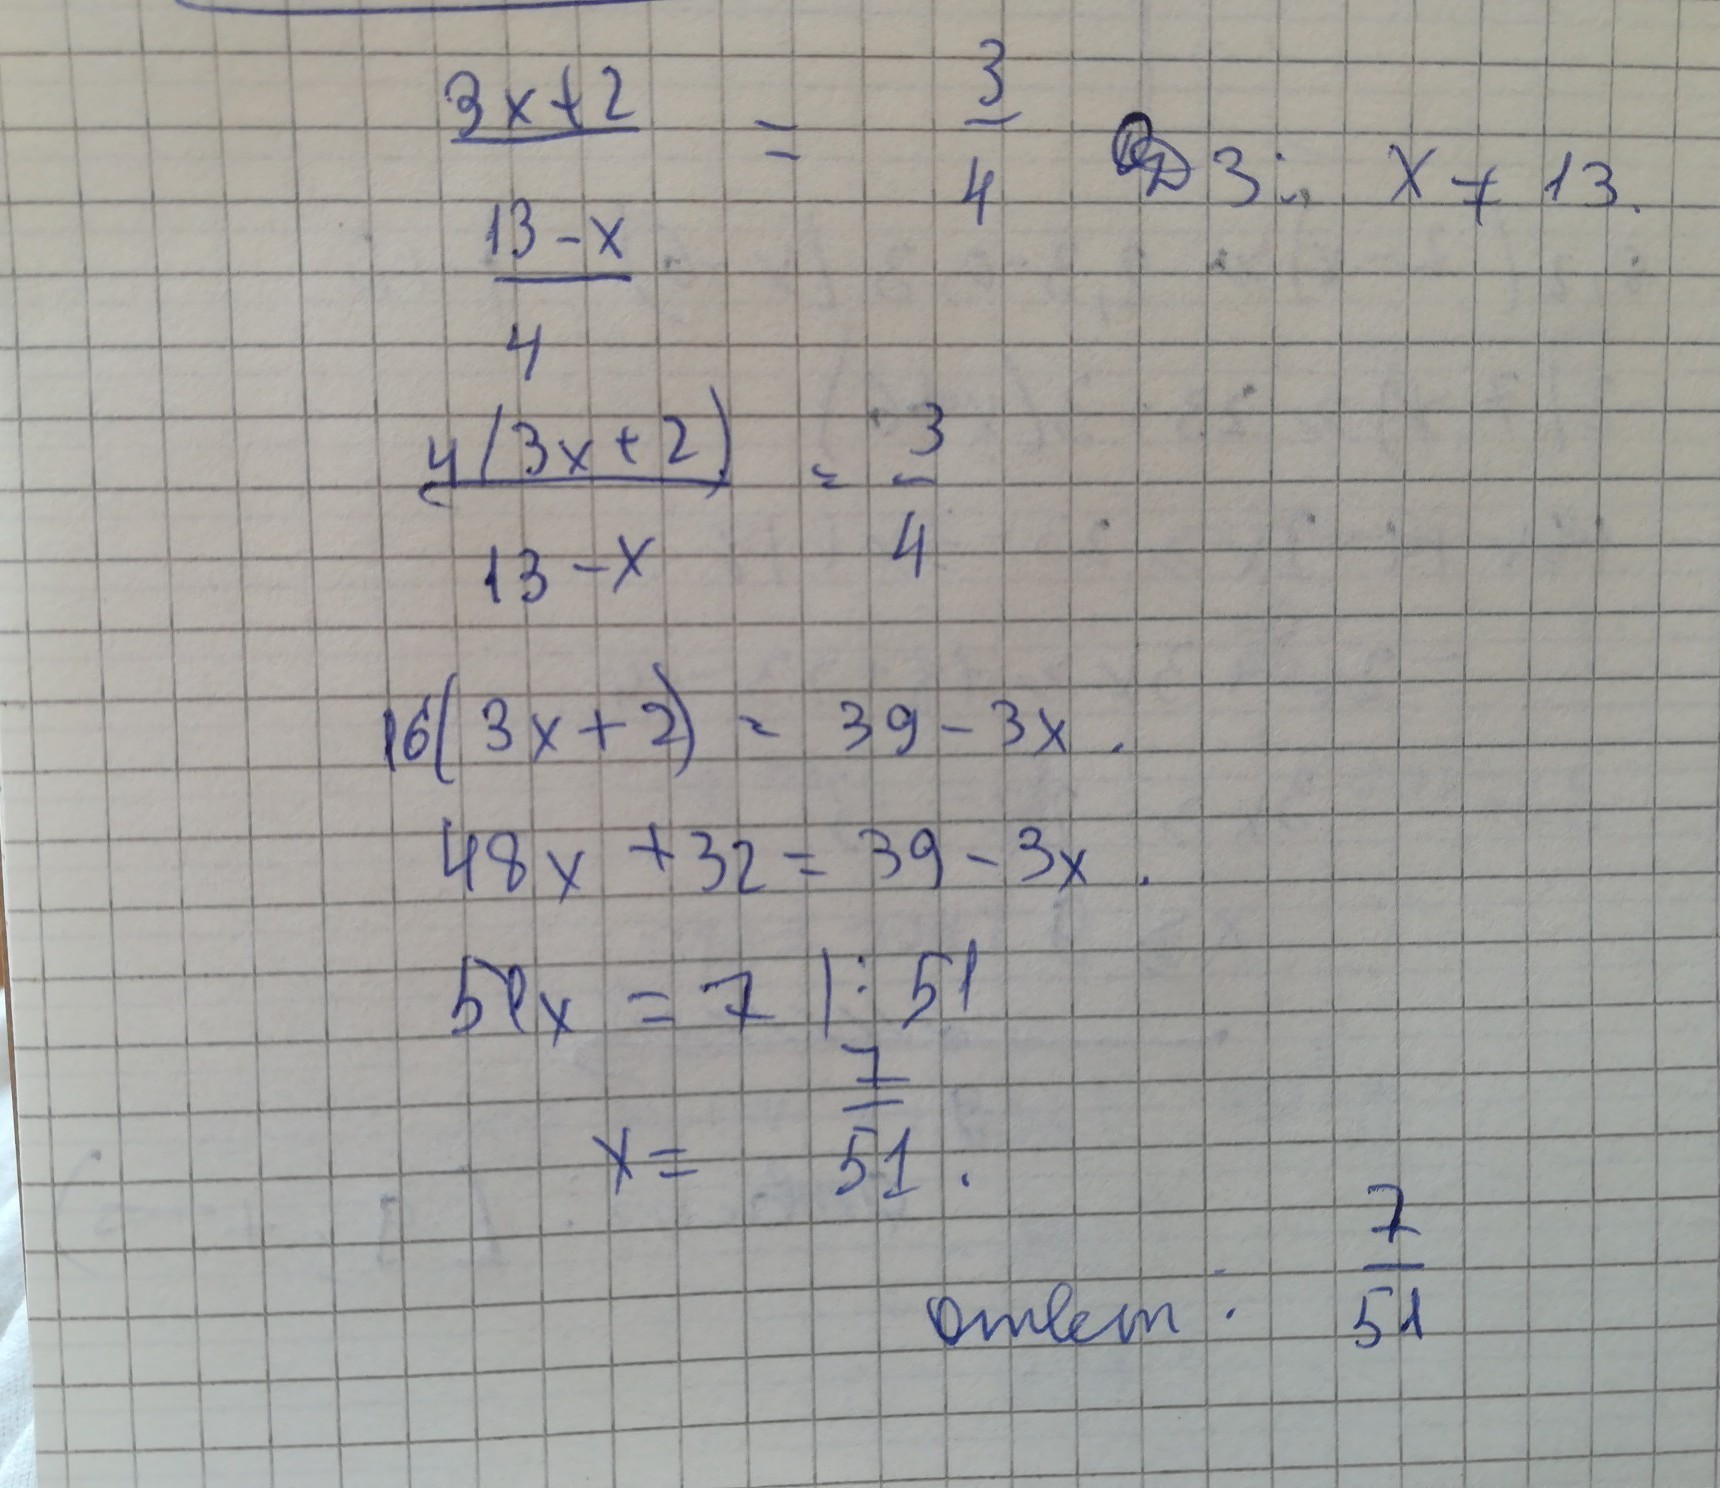 3x+2 = 3
13-x 4 ОДЗ: x ≠ 13.
4
4(3x+2) = 3
13-x 4
16(3x+2) = 39-3x.
48x +32 = 39-3x.
51x = 7 |: 51
x= 7/51.
ответ: 7/51